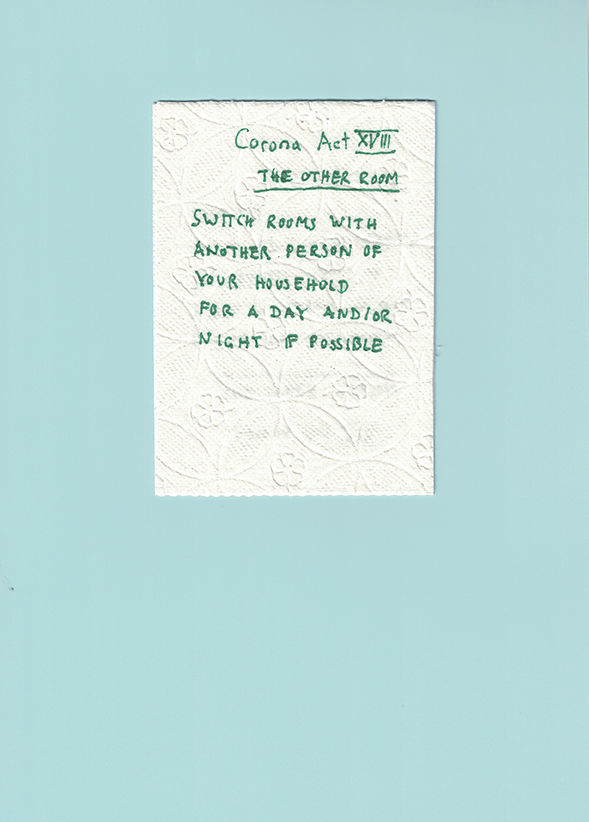 Corona Act XVIII
THE OTHER ROOM
SWITCH ROOMS WITH
ANOTHER PERSON OF
YOUR HOUSEHOLD
FOR A DAY AND/OR
NIGHT IF POSSIBLE